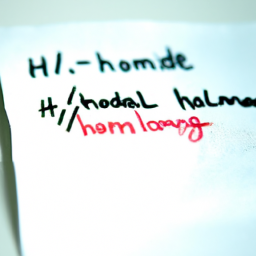 H/.-homide
H//hodal halma
//hom loapg